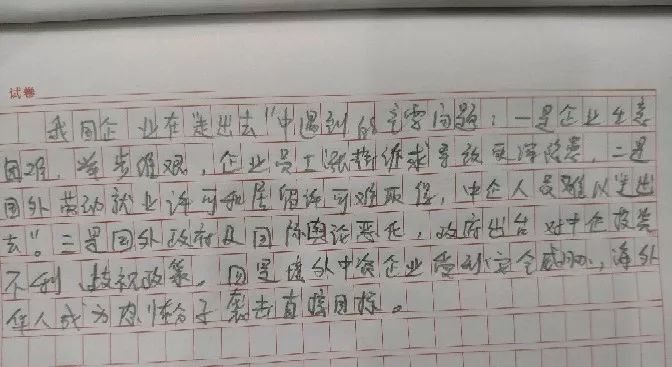 试卷
我国企业在"走出去"中遇到的主要问题:一是企业生意
困难,举步维艰,企业员工涨薪诉求导致
国外劳动就业许可和居留许可难取得,中企人员难以"走出
去"。三是国外政府及国际舆论恶化,政府出台对中企投资
不利歧视政策。四是境外中资企业受到安全威胁,海外
华人成为袭击直接目标。